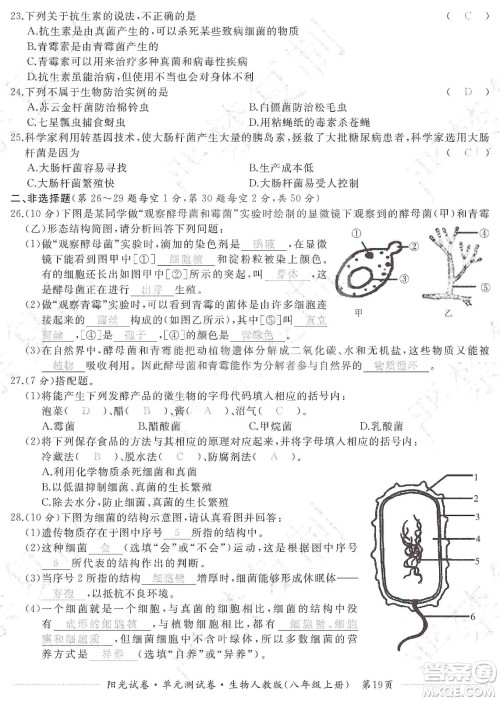 23.下列关于抗生素的说法,不正确的是 ( C )
A.抗生素是由真菌产生的,可以杀死某些细菌的物质
B.青霉素是由青霉菌产生的
C.青霉素可以用来治疗多种真菌和细菌引起的疾病
D.抗生素虽能治病,但也不能滥用
24.下列不属于生物防治实例的是 ( D )
A.苏云金杆菌防治棉铃虫 B.白僵菌防治松毛虫
C.七星瓢虫捕食蚜虫 D.用粘蝇纸的毒素杀苍蝇
25.科学家利用转基因技术,使大肠杆菌产生大量的胰岛素,拯救了大批糖尿病患者,科学家选用大肠
杆菌是因为 ( C )
A.大肠杆菌容易寻找 B.大肠杆菌容易提取
C.大肠杆菌繁殖快 D.大肠杆菌易受人控制
二、非选择题(第26~29题每空1分,第30题每空2分,共50分)
26.(10分)下图是某同学做“观察酵母菌和霉菌”实验时绘制的显微镜下观察到的酵母菌(甲)和青霉
(乙)形态结构图,请分析回答下列问题:
(1)做“观察酵母菌”实验时,滴加的染色剂是 碘液 ,在显微
镜下能看到图甲中[②] 细胞核 和淀粉粒被染上颜色。
还能看到如图甲中[①]所示的突起,叫 芽体 ,这是
酵母菌正在进行 出芽 生殖。
(2)做“观察青霉”实验时,可以看到青霉的菌体由许多细胞连
接起来的 菌丝 构成的(如图乙),其中[③]叫 直立
菌丝 ,[④]是 孢子 ,[④]的颜色是 青绿色 。
(3)在自然界中,酵母菌和青霉能把动植物遗体分解成二氧化碳、水和无机盐,这些物质又能被
植物 吸收利用。因此酵母菌和青霉能作为分解者参与自然界的 物质 循环。
甲 乙
① ② ③ ④
27.(7分)搭配题。
(1)将能产生下列发酵产品的微生物的字母代码填在相应的括号内:
泡菜( ),醋( ),酱( ),沼气( )。
A.霉菌 B.醋酸菌 C.甲烷菌 D.乳酸菌
(2)将下列保存食品的方法与其主要原理对应起来,并将字母代码填在相应括号内:
冷藏法( ),脱水法( ),防腐剂法( )。
A.利用化学物质杀死细菌和真菌
B.以低温抑制细菌、真菌的生长繁殖
C.除去水分,防止细菌、真菌的生长繁殖
28.(10分)下图为细菌的结构示意图,请认真观察并回答:
(1)遗传物质存在于图中序号 5 所代表的结构中。
(2)这种细菌 会 (选填“会”或“不会”)运动,因为它有图中序号
6 代表的结构。
(3)当序号2所指的结构— 细胞壁 增厚时,细菌能形成休眠体——
芽孢 ,以抵抗不良环境。
(4)一个细菌就是一个细胞,与真菌的细胞相比,细菌的结构中没
有 成形的细胞核 ,与植物细胞相比,没有 成形的细胞
核 。大部分细菌细胞中不含叶绿体,所以它们大多数只能依赖
现成的有机物 生活。
1
2
3
4
5
6
阳光试卷·单元测试卷·生物人教版(八年级上册) 第19页